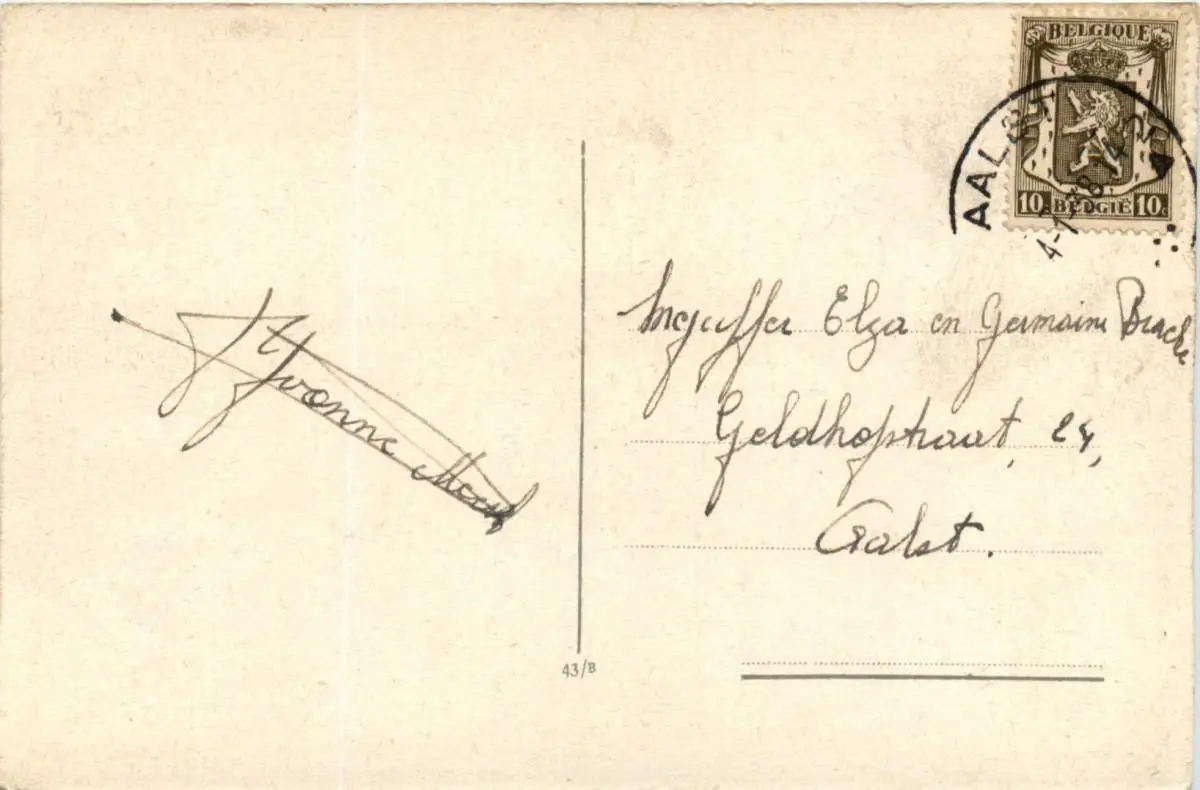 BELGIQUE
AALST
4-1-38
10c BELGIË 10c
Mejuffer Elza en Germaine Bracke
Geldhofstraat, 24,
Aalst.
Yvonne
43/B